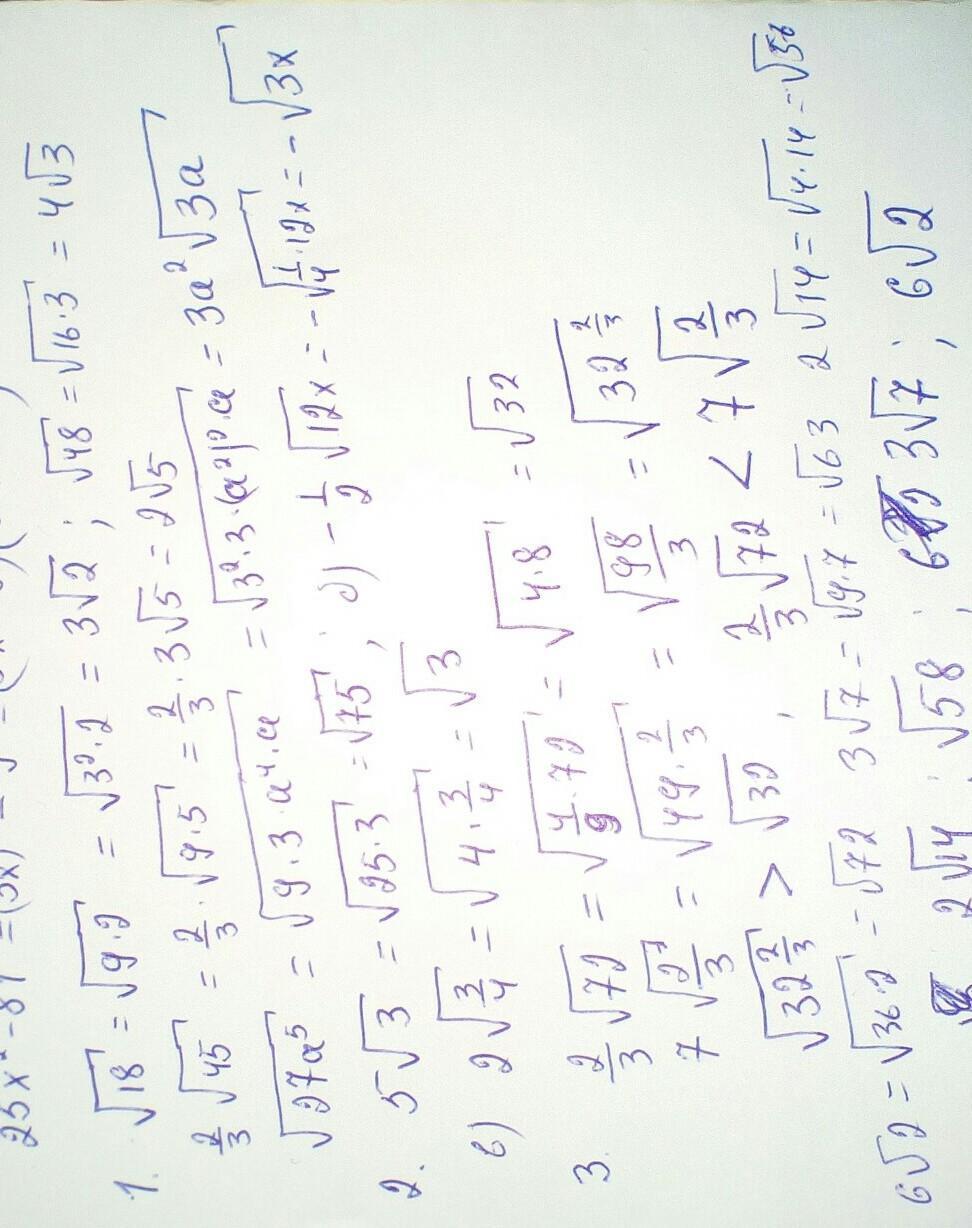 25x² - 81 = (5x)
1. √18 = √9·2 = √3²·2 = 3√2 ; √48 = √16·3 = 4√3
2/3 √45 = 2/3 · √9·5 = 2/3 · 3√5 = 2√5
√27a⁵ = √9·3·a⁴·a = √3²·3·(a²)²·a = 3a²√3a
2. 5√3 = √25·3 = √75 ; д) - 1/2 √12x = -√1/4·12x = -√3x
в) 2√3/4 = √4·3/4 = √3
3. 2/3 √72 = √4/9·72 = √4·8 = √32
7√2/3 = √49·2/3 = √98/3 = √32 2/3
√32 2/3 > √32 , 2/3 √72 < 7√2/3
6√2 = √36·2 = √72 3√7 = √9·7 = √63 2√14 = √4·14 = √56
2√14 ; √58 ; 3√7 ; 6√2